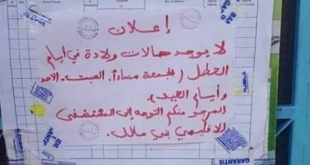 إعلان
لا يوجد حالات ولادة في أيام
العطل (الجمعة مساءً. السبت. الأحد
وأيام العيد).
المرجو منكم التوجه إلى المستشفى
الإقليمي بني ملال.
GARANTIE